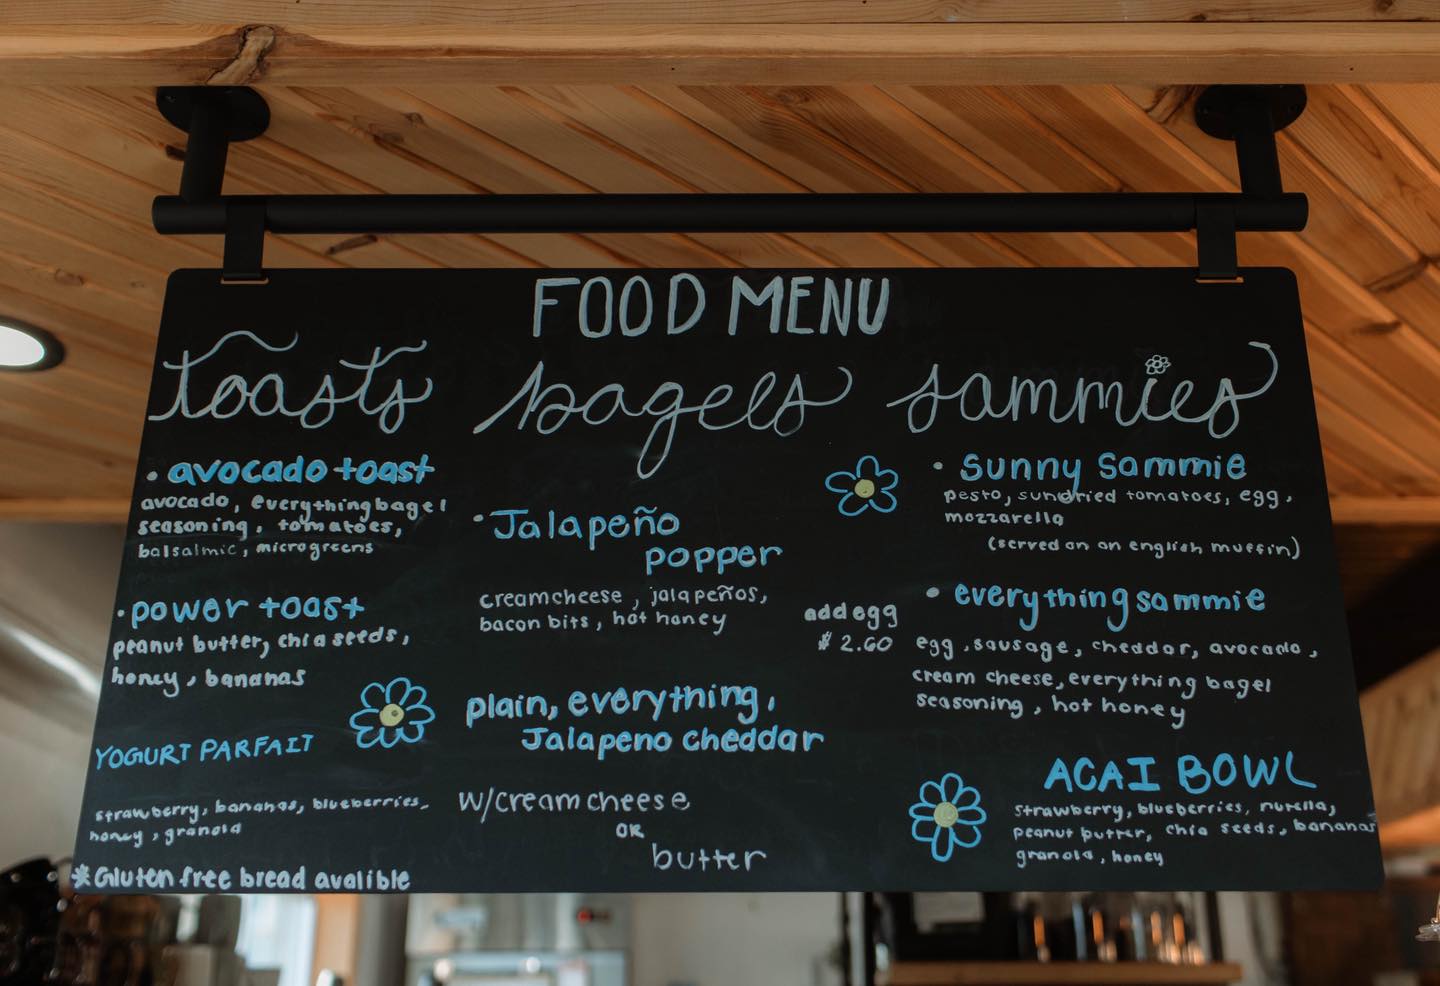 FOOD MENU
toasts
• avocado toast
avocado, everything bagel
seasoning, tomatoes,
balsalmic, microgreens
• power toast
peanut butter, chia seeds,
honey, bananas
YOGURT PARFAIT
strawberry, bananas, blueberries,
honey, granola
*Gluten free bread avalible
bagels
• Jalapeño
popper
creamcheese, jalapeños,
bacon bits, hot honey
plain, everything,
Jalapeno cheddar
w/creamcheese
OR
butter
sammies
• sunny sammie
pesto, sundried tomatoes, egg,
mozzarella
(served on an english muffin)
add egg
$2.60
• everything sammie
egg, sausage, cheddar, avocado,
cream cheese, everything bagel
seasoning, hot honey
ACAI BOWL
strawberry, blueberries, nutella,
peanut butter, chia seeds, bananas
granola, honey